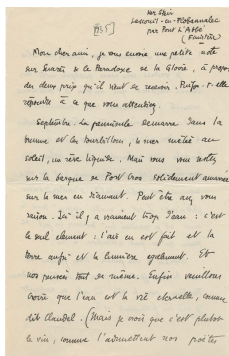 Ker Stéir
Lesconil-en-Plobannalec
par Pont L'Abbé
(Finistère)
[35]
Mon cher ami, je vous envoie une petite note
sur Suarès & le Paradoxe de la Gloire, à propos
des deux prix qu'il vient de recevoir. Puisse-t-elle
répondre à ce que vous attendiez.
Septembre. La péninsule démarre dans la
brume et les tourbillons, la mer au
soleil, un rêve liquide. Mais vous vous restez
sur la barque de Port Cros solidement amarrée
sur la mer en diamant. Peut-être avez vous
raison. Ici il y a vraiment trop d'eau : c'est
le seul élément : l'air en est fait et la
terre aussi et la lumière également. Et
nos pensées tout de même. Enfin veuillons
croire que l'eau est la vie éternelle, comme
dit Claudel. (Mais je crois que c'est plutôt
le vin, comme l'admettent nos poètes